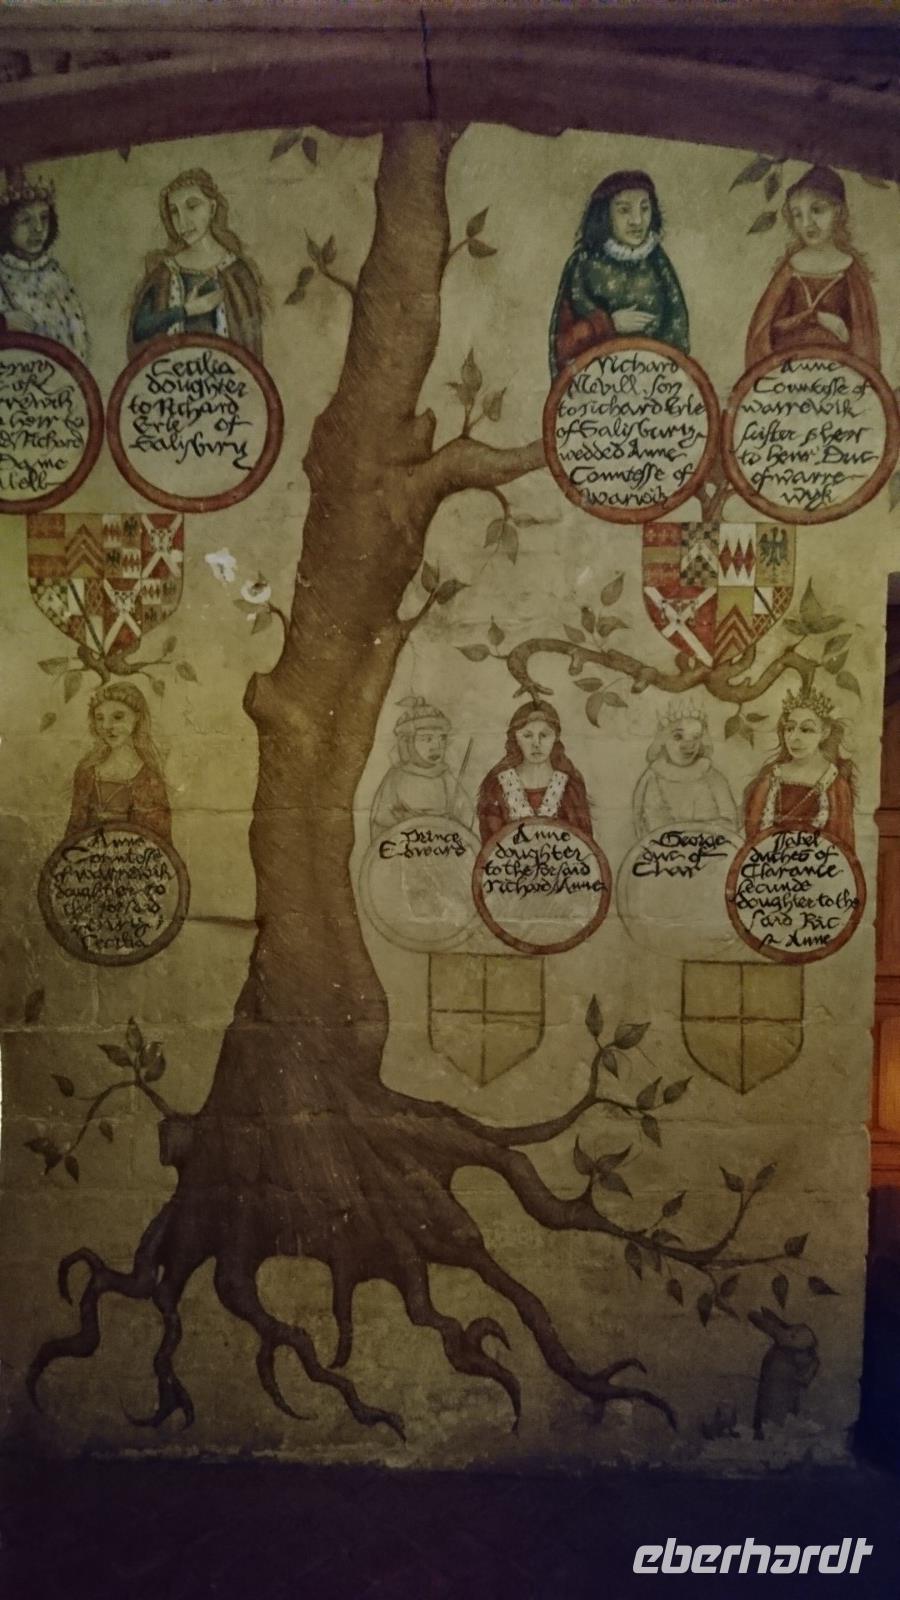 Cecilia
doughter
to Richard
Erle of
Salisbury
Richard
Nevill son
to richard Erle
of Salisbury
wedded Anne
Comtesse of
Warwik
Anne
Comtesse of
warrewik
suster & heyr
to henr Duc
of warre
wyk
Anne
Comtesse
of warrewik
doughter to
the forsaid
Cecilia
Prince
Edward
Anne
doughter
to the forsaid
Richard Anne
George
duc of
Clar
Isabel
duches of
Clarance
secunde
doughter to the
said Ric
& Anne
eberhardt